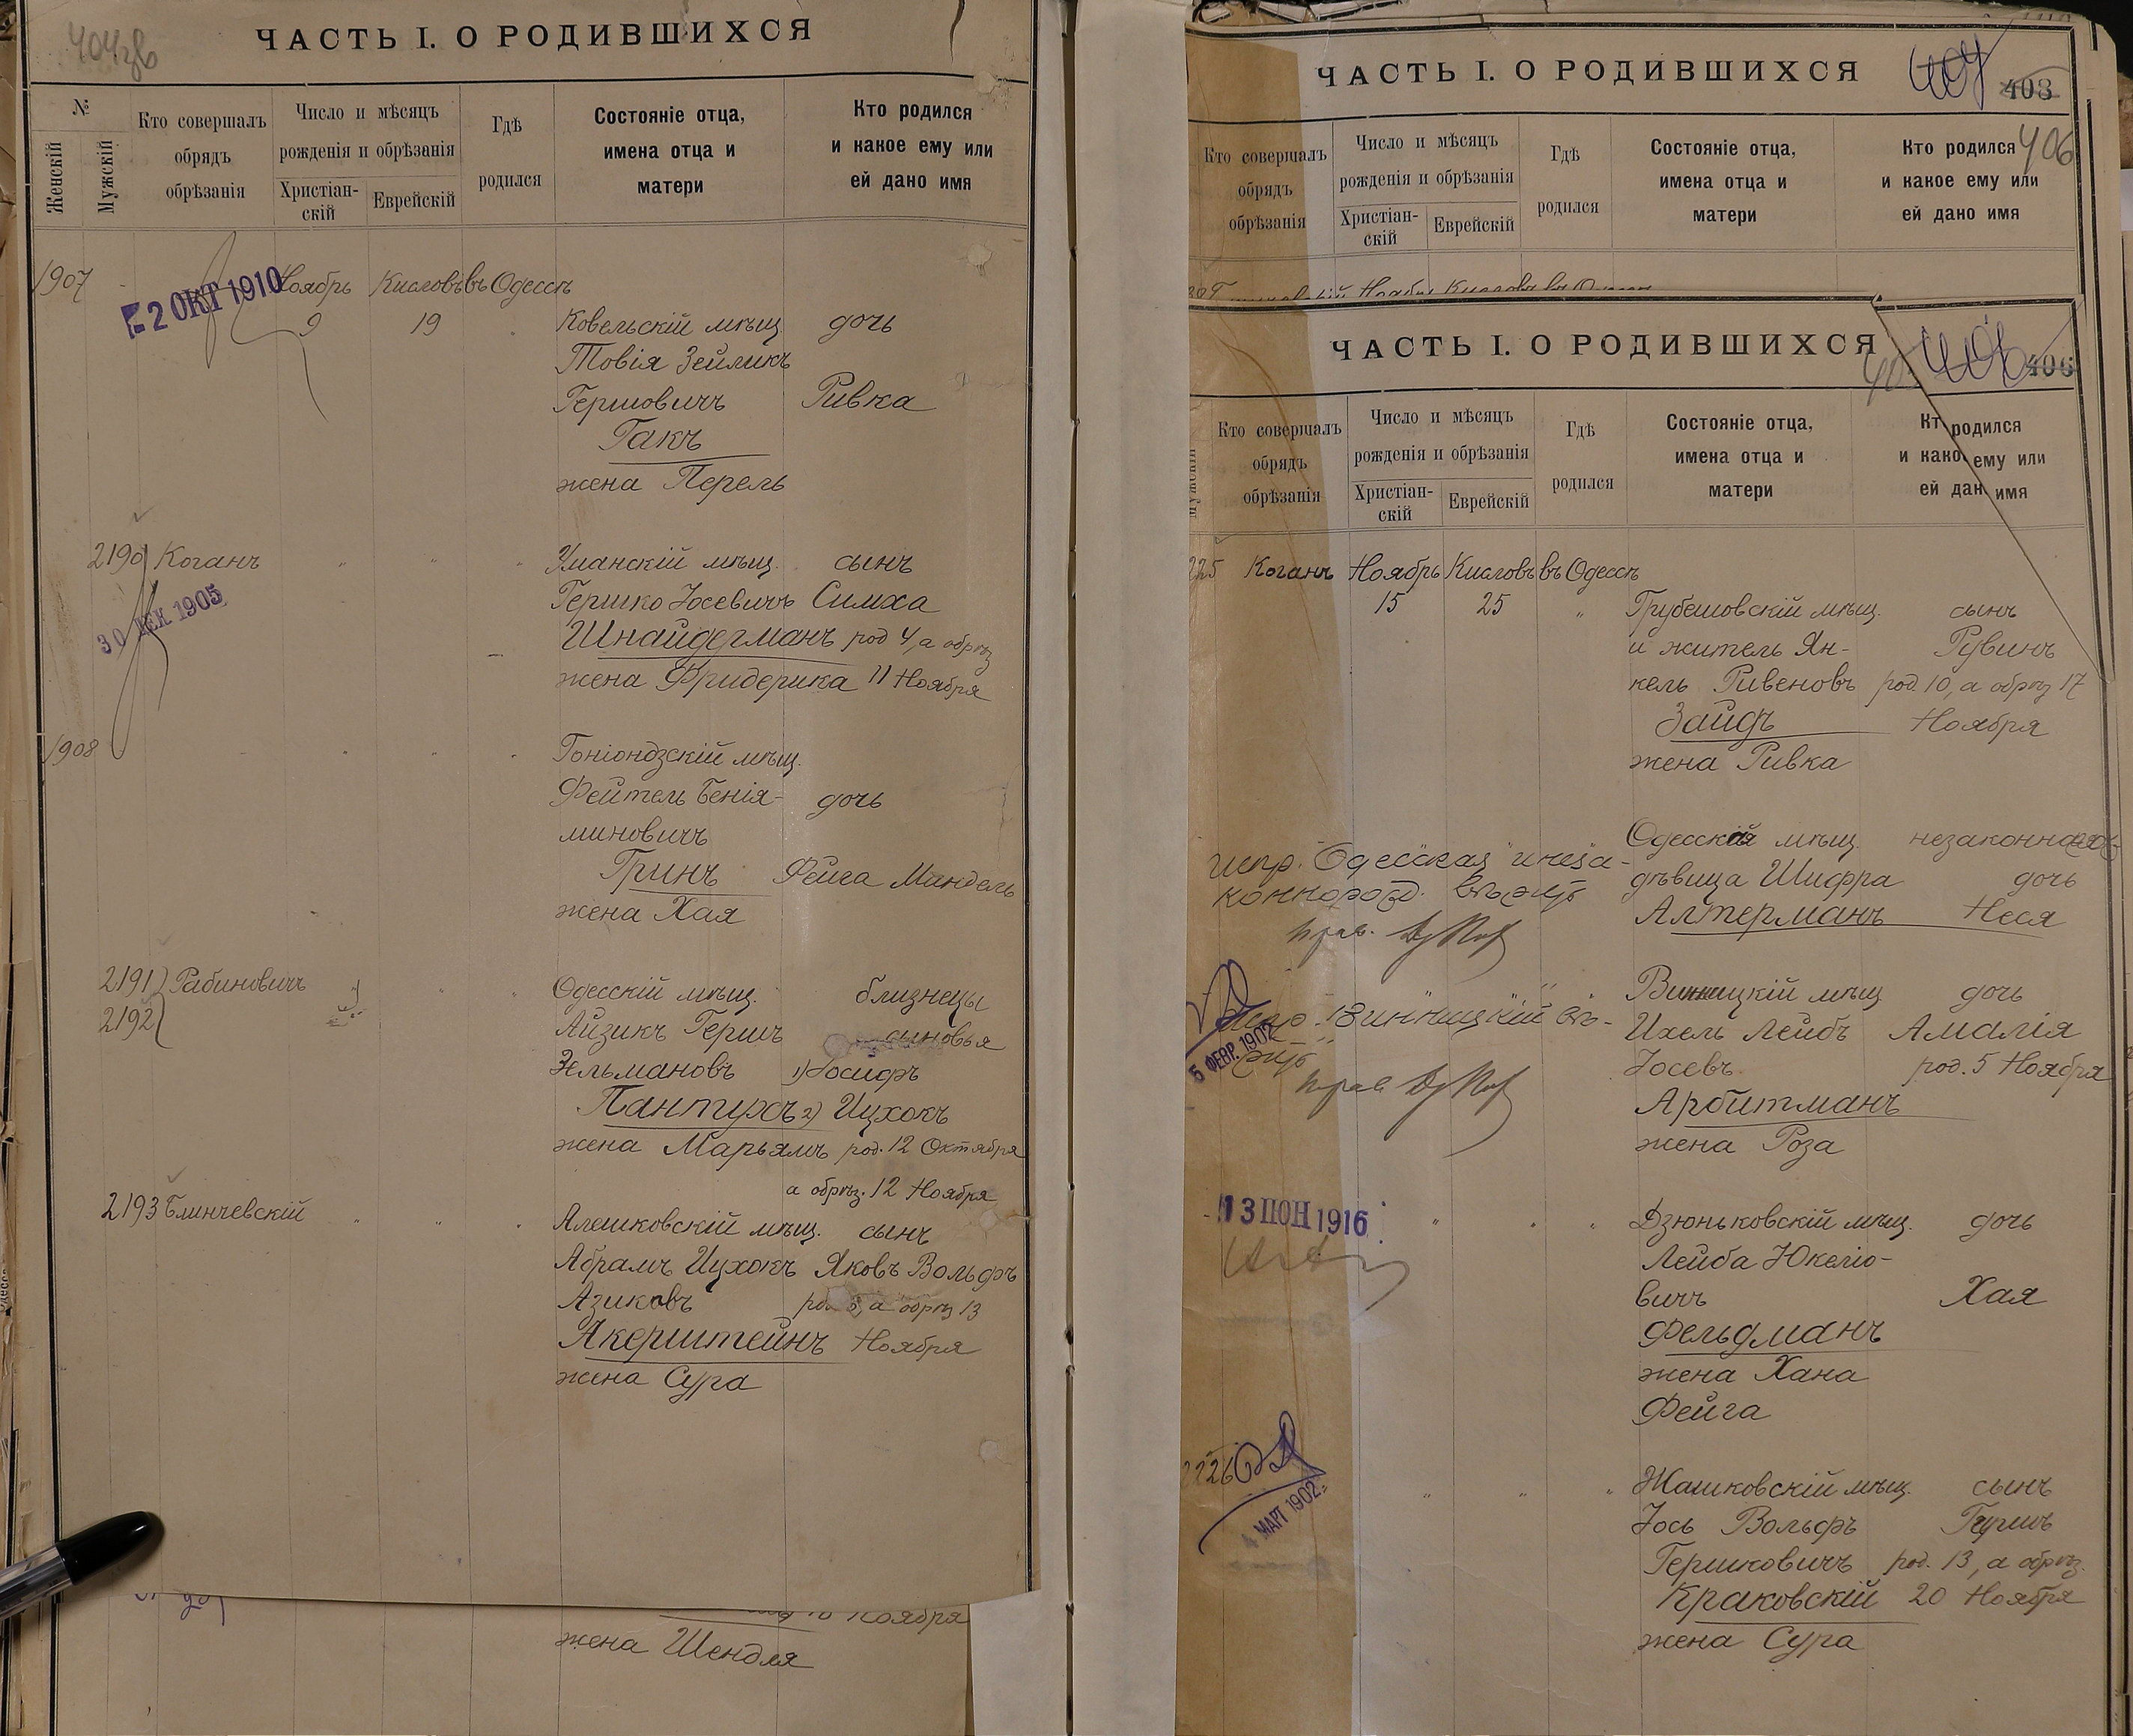 404зв
ЧАСТЬ I. О РОДИВШИХСЯ
№
Женскій
Мужскій
Кто совершалъ
обрядъ
обрѣзанія
Число и мѣсяцъ
рожденія и обрѣзанія
Христіан-
скій
Еврейскій
Гдѣ
родился
Состояніе отца,
имена отца и
матери
Кто родился
и какое ему или
ей дано имя
1907 Ноябрь Кисловъ въ Одессѣ
2 ОКТ 1910
9 19 Ковельскій мѣщ. дочь
Товія Зейликъ
Гершовичъ Ривка
Гакъ
жена Перель
2190 Коганъ " " " Уманскій мѣщ. сынъ
30 ДЕК 1905
Гершко Іосевичъ Симха
Шнайдерманъ род 4, а обрѣз
жена Фридерика 11 Ноября
1908 " " " Гоніондзскій мѣщ.
Фейтель Бенія- дочь
миновичъ
Гринъ Фейга Мандель
жена Хая
2191 Рабиновичъ " " Одесскій мѣщ. близнецы
2192 Айзикъ Гершъ сыновья
Зельмановъ 1) Іосифъ
Пантухъ 2) Ицхокъ
жена Марьямъ род. 12 Октября
а обрѣз. 12 Ноября
2193 Блинчевскій " " " Алешковскій мѣщ. сынъ
Абрамъ Ицхокъ Яковъ Вольфъ
Азиковъ а обрѣз 13
Акерштейнъ Ноября
жена Сура
Ноября
жена Шендля
ЧАСТЬ I. О РОДИВШИХСЯ
407 403
406
Кто совершалъ
обрядъ
обрѣзанія
Число и мѣсяцъ
рожденія и обрѣзанія
Христіан-
скій
Еврейскій
Гдѣ
родился
Состояніе отца,
имена отца и
матери
Кто родился
и какое ему или
ей дано имя
Ноябрь Кисловъ въ Одессѣ
ЧАСТЬ I. О РОДИВШИХСЯ
406
Мужскій
Кто совершалъ
обрядъ
обрѣзанія
Число и мѣсяцъ
рожденія и обрѣзанія
Христіан-
скій
Еврейскій
Гдѣ
родился
Состояніе отца,
имена отца и
матери
Кт родился
и како ему или
ей дан имя
225 Коганъ Ноябрь Кисловъ въ Одессѣ
15 25 " Грубешовскій мѣщ. сынъ
и житель Ян- Рувинъ
кель Ривеновъ род. 10, а обрѣз 17
Зайдъ Ноября
жена Ривка
Одесская мѣщ. незаконная
дѣвица Шифра дочь
Алтерманъ Неся
испр. "Одесская" "незa-
коннорожд.
Винницкій мѣщ дочь
Ихель Лейбъ Амалія
испр. "Винницкій"
5 ФЕВР. 1902
Іосевъ род. 5 Ноября
Арбитманъ
жена Роза
13 ІЮН 1916 " " " Дзюньковскій мѣщ. дочь
Лейба Юкеліо-
вичъ Хая
Фельдманъ
жена Хана
Фейга
2226 " " " Жашковскій мѣщ. сынъ
4 МАРТ 1902
Іось Вольфъ Гершъ
Гершковичъ род. 13, а обрѣз.
Краковскій 20 Ноября
жена Сура